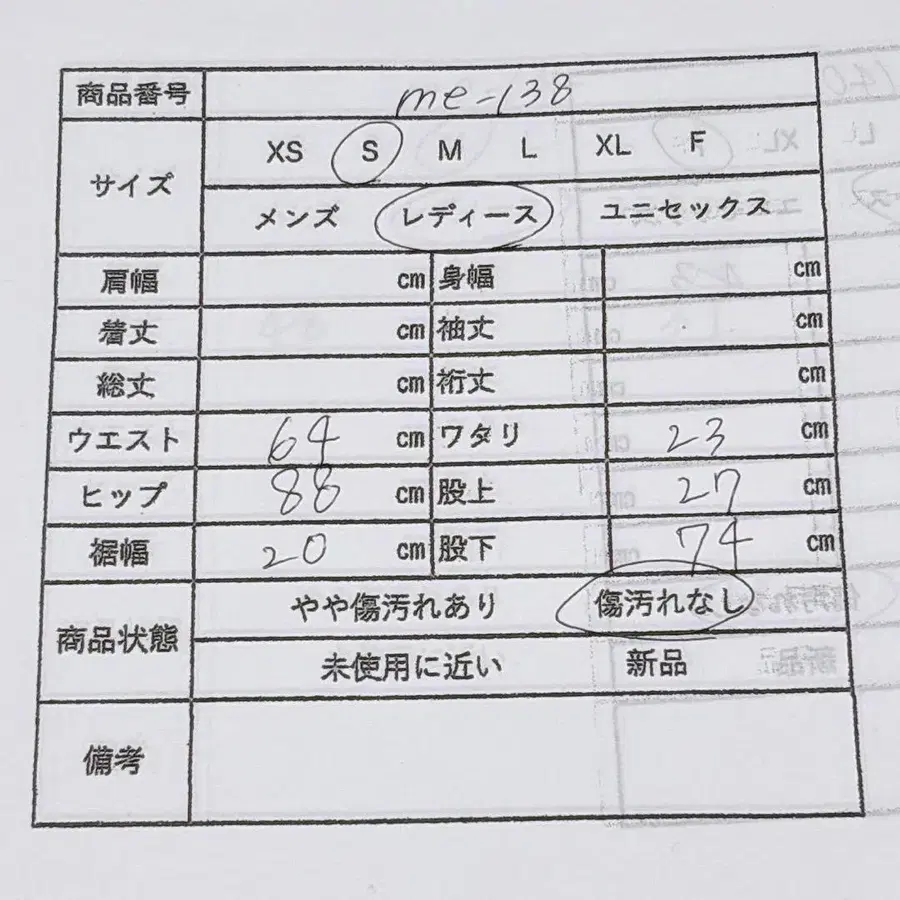 商品番号 me-138
サイズ XS S M L XL F
メンズ レディース ユニセックス
肩幅 cm 身幅 cm
着丈 cm 袖丈 cm
総丈 cm 裄丈 cm
ウエスト 64 cm ワタリ 23 cm
ヒップ 88 cm 股上 27 cm
裾幅 20 cm 股下 74 cm
商品状態 やや傷汚れあり 傷汚れなし
未使用に近い 新品
備考